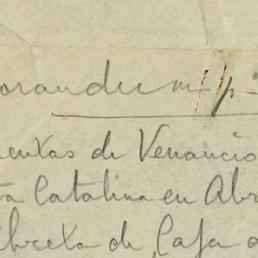 orandum p
entas de Venancio
ta Catalina en Abr
ibreta de Caja d